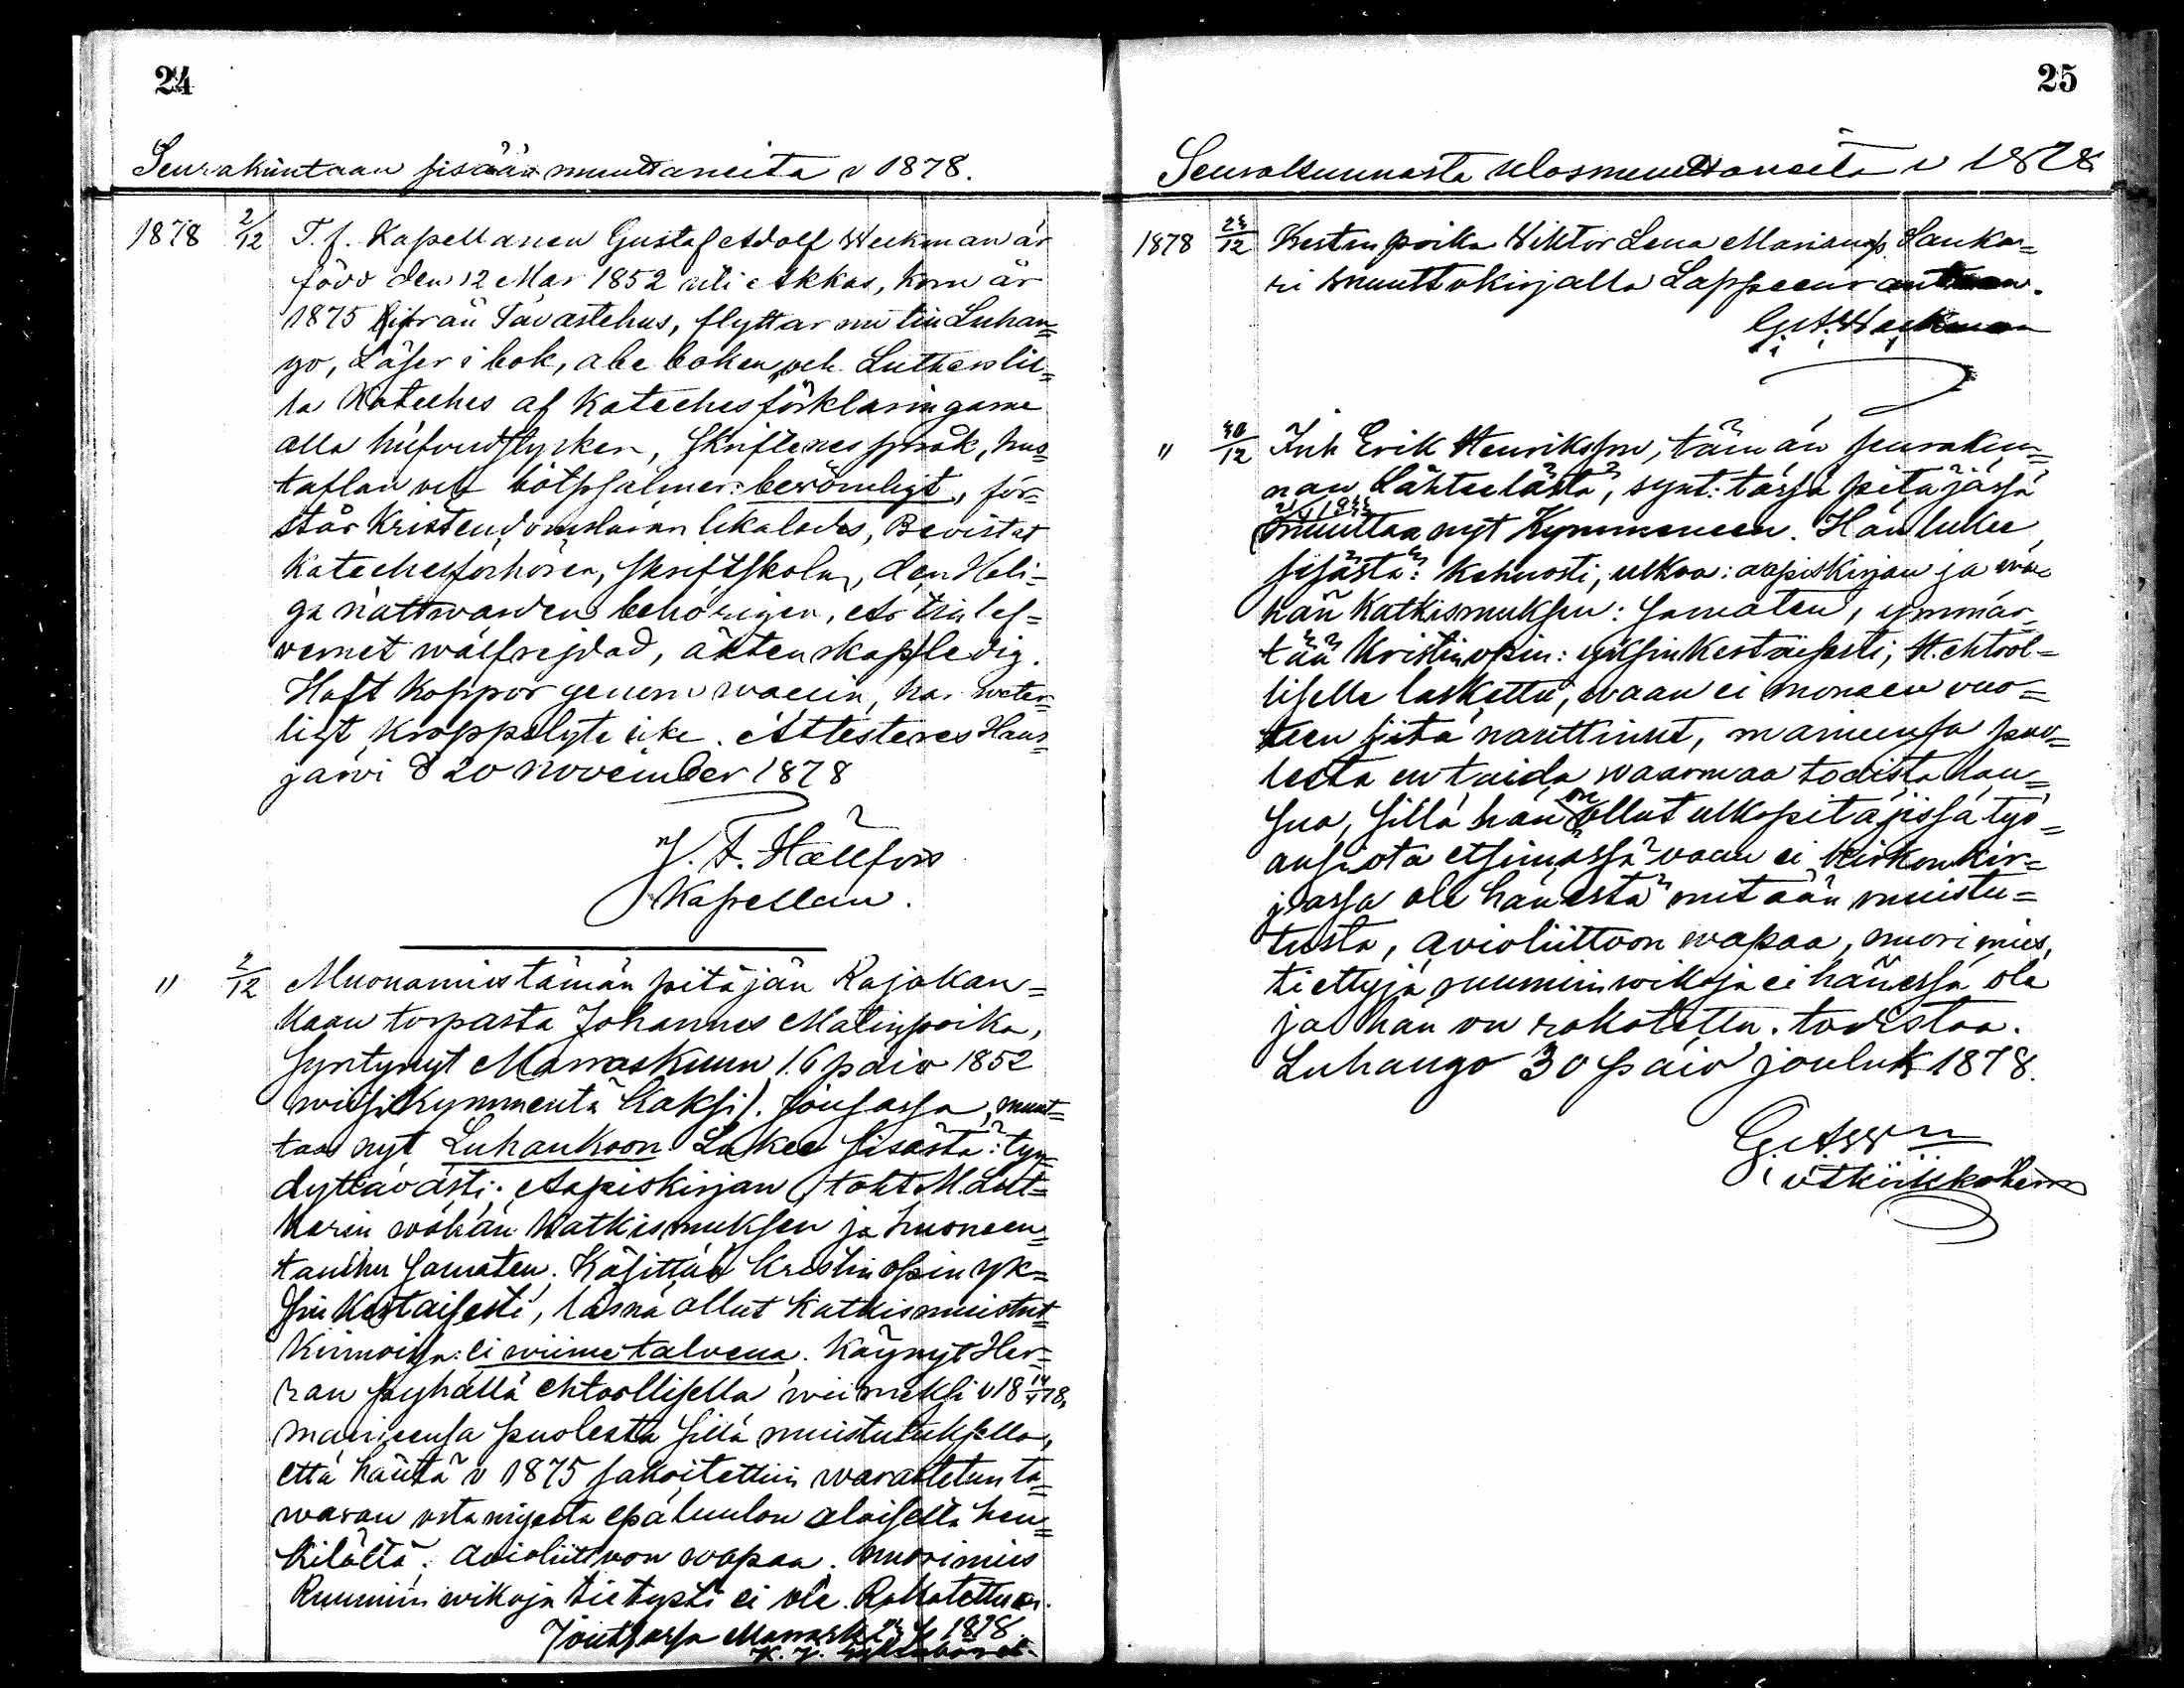 24
Seurakuntaan sisään muuttaneita v 1878.
1878 2/12 T. f. Kapellanen Gustaf Adolf Weckman är
född den 12 Mar 1852 uti Akkas, kom år
1875 hit från Tavastehus, flyttar nu till Luhan=
go, Läser i bok, abc boken och Lutherslil=
la Kateches af Katechesförklaringarne
alla hufvudstycken, Skriftenes språk, hus=
taflan och botpsalmer: berömligt, för=
står Kristendomsläran likaledes, Bevistat
Katechesförhören, Skriftskolan, den Heli-
ga nattwarden behörigen, Är till lef=
wernet wälfrejdad, äktenskapsledig.
Haft koppor genom vaccin, har weter=
ligt kroppslyte icke. Attesteres Haus=
järvi d 20 November 1878
J. F. Hällfors
Kapellan.
" 2/12 Muonamies tämän pitäjän Rajakan=
kaan torpasta Johannes Matinpoika,
syntynyt Marraskuun 16 päiv 1852
wiisikymmentä kaksi). Joutsassa, muut=
taa nyt Luhankoon. Lukee sisästä: tyy=
dyttävästi. Aapiskirjan, toht. M. Lut=
herin wähän Katkismuksen ja huoneen=
taulun samaten. Käsittää Kristin opin yk=
sinkertaisesti, läsnä ollut Katkismuistut
kinnoissa: ei wiime talvena. Käynyt Her=
ran pyhällä ehtoollisella wiimeksi v 18 14/4 78,
maineensa puolesta sillä muistutuksella,
että häntä v 1875 sakoitettiin warastetun ta=
waran ostamisesta epäluulon alaiselta hen=
kilöltä; avioliittoon wapaa. nuorimies
Ruumiin wikoja tietysti ei ole. Rokotettu on.
Joutsassa Marrask 1878.
25
Seurakunnasta ulosmuuttaneita v 1878
1878 /12 Kestinpoika Wiktor Lena Marianp. Sanka=
ri muuttokirjalla Lappeenrantaan.
G. A. Weckman
" 30/12 Ink Erik Henriksson, tämän seurakun=
nan Lähteelästä, synt: tässä pitäjässä
muuttaa nyt Kymmeneen. Hän lukee
sisästä: kehnosti, ulkoa: aapiskirjan ja wä=
hän Katkismuksen: samaten, ymmär=
tää Kristin opin: yksinkertaisesti, H. ehtool=
liselle laskettu, waan ei moneen vuo=
teen sitä nauttinut, maineensa puo=
lesta en taida waarmaa todista lau=
sua, sillä hän on ollut ulkopitäjissä työ=
ansiota etsimässä vaan ei kirkonkir=
jassa ole hänestä mitään muistu=
tusta, avioliittoon wapaa, nuori mies,
tiettyjä ruumiin wikoja ei hänessä ole
ja hän on rokotettu. todistaa.
Luhango 30 päiv jouluk 1878.
G. A. W